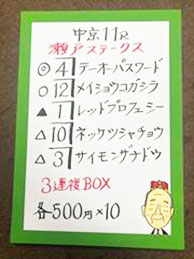 中京11R
瀬戸ステークス
◎4テーオーパスワード
○12メイショウコガシラ
▲1レッドプロフェシー
△10ネッケツシャチョウ
△3サイモンザナドゥ
3連複BOX
各500円×10